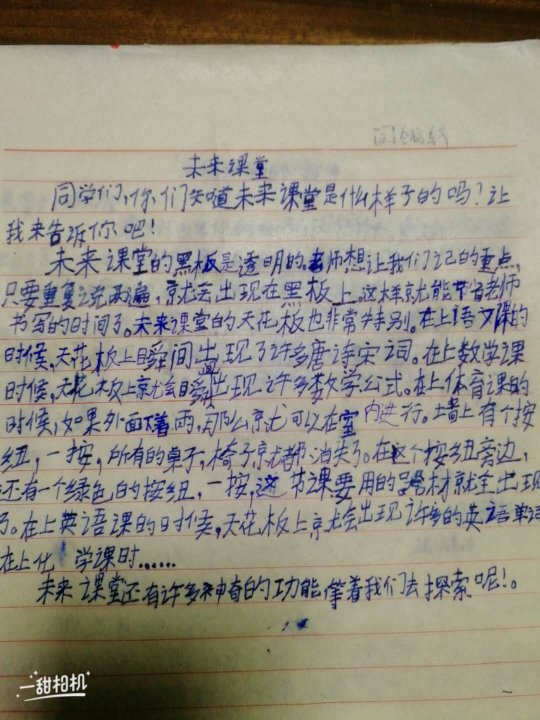 未来课堂
同学们,你们知道未来课堂是什么样子的吗?让
我来告诉你吧!
未来课堂的黑板是透明的。老师想让我们记的重点,
只要重复说两遍,就会出现在黑板上。这样就能节省老师
书写的时间了。未来课堂的天花板也非常特别。在上语文课的
时候,天花板上瞬间出现了许多唐诗宋词。在上数学课
时候,天花板上就会瞬出现许多数学公式。在上体育课的
时候,如果外面下着雨,那么就可以在室内进行。墙上有个按
纽,一按,所有的桌子,椅子就都消失了。在这个按纽旁边,
还有一个绿色的按纽,一按,这节课要用的器材就全出现
了。在上英语课的时候,天花板上就会出现许多的英语单词
在上化学课时……
未来课堂还有许多神奇的功能,等着我们去探索呢!。
一甜相机